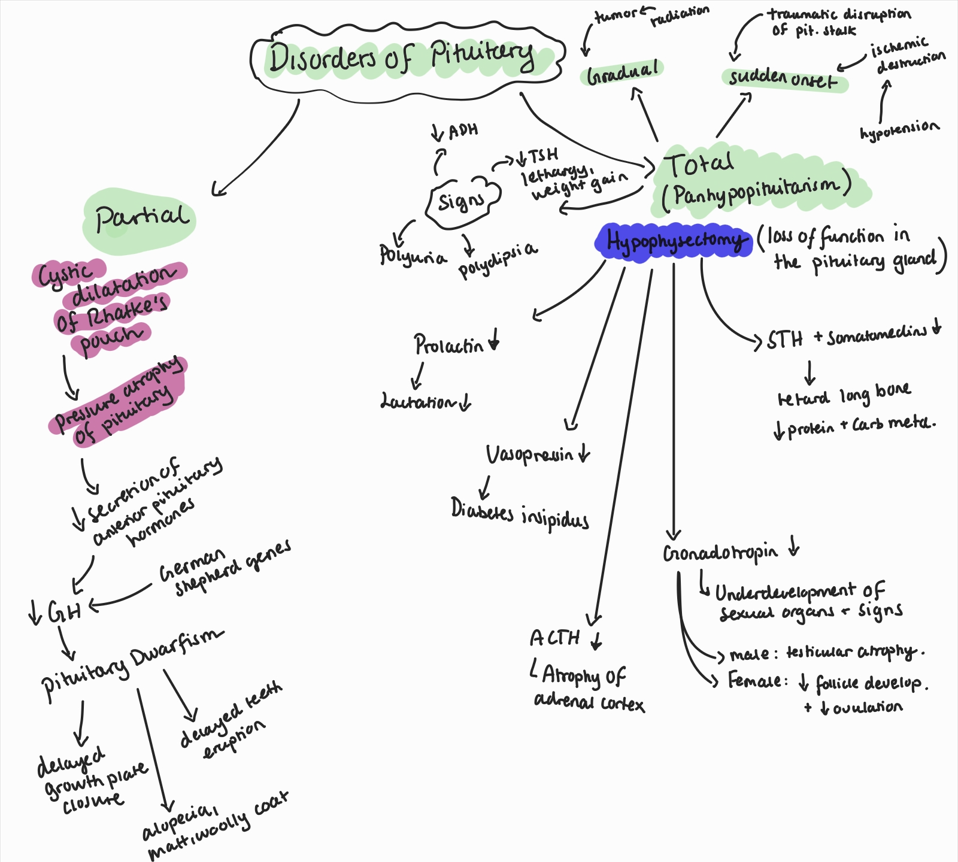 Disorders of Pituitary
tumor radiation
Gradual
traumatic disruption
of pit. stalk
sudden onset
ischemic
destruction
hypotension
Total
(Panhypopituitarism)
Signs
↓ ADH
↓ TSH
lethargy,
weight gain
Polyuria
polydipsia
Partial
Cystic
dilatation
of Rhatke's
pouch
Pressure atrophy
of pituitary
↓ secretion of
anterior pituitary
hormones
German
shepherd genes
↓ GH
Pituitary Dwarfism
delayed
growth plate
closure
alopecia,
matt, woolly coat
delayed teeth
eruption
Hypophysectomy (loss of function in
the pituitary gland)
Prolactin ↓
Lactation ↓
Vasopressin ↓
Diabetes insipidus
ACTH ↓
Atrophy of
adrenal cortex
Gonadotropin ↓
Underdevelopment of
sexual organs + signs
male: testicular atrophy.
Female: ↓ follicle develop.
+ ↓ ovulation
STH + Somatomedins ↓
retard long bone
↓ protein + carb metab.